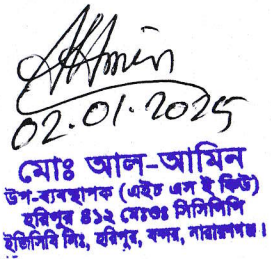 AlAmin
02.01.2025
মোঃ আল-আমিন
উপ-ব্যবস্থাপক (এইচ এস ই কিউ)
হরিপুর ৪১২ মেঃওঃ সিসিপিপি
ইজিসিবি লিঃ, হরিপুর, বন্দর, নারায়ণগঞ্জ।